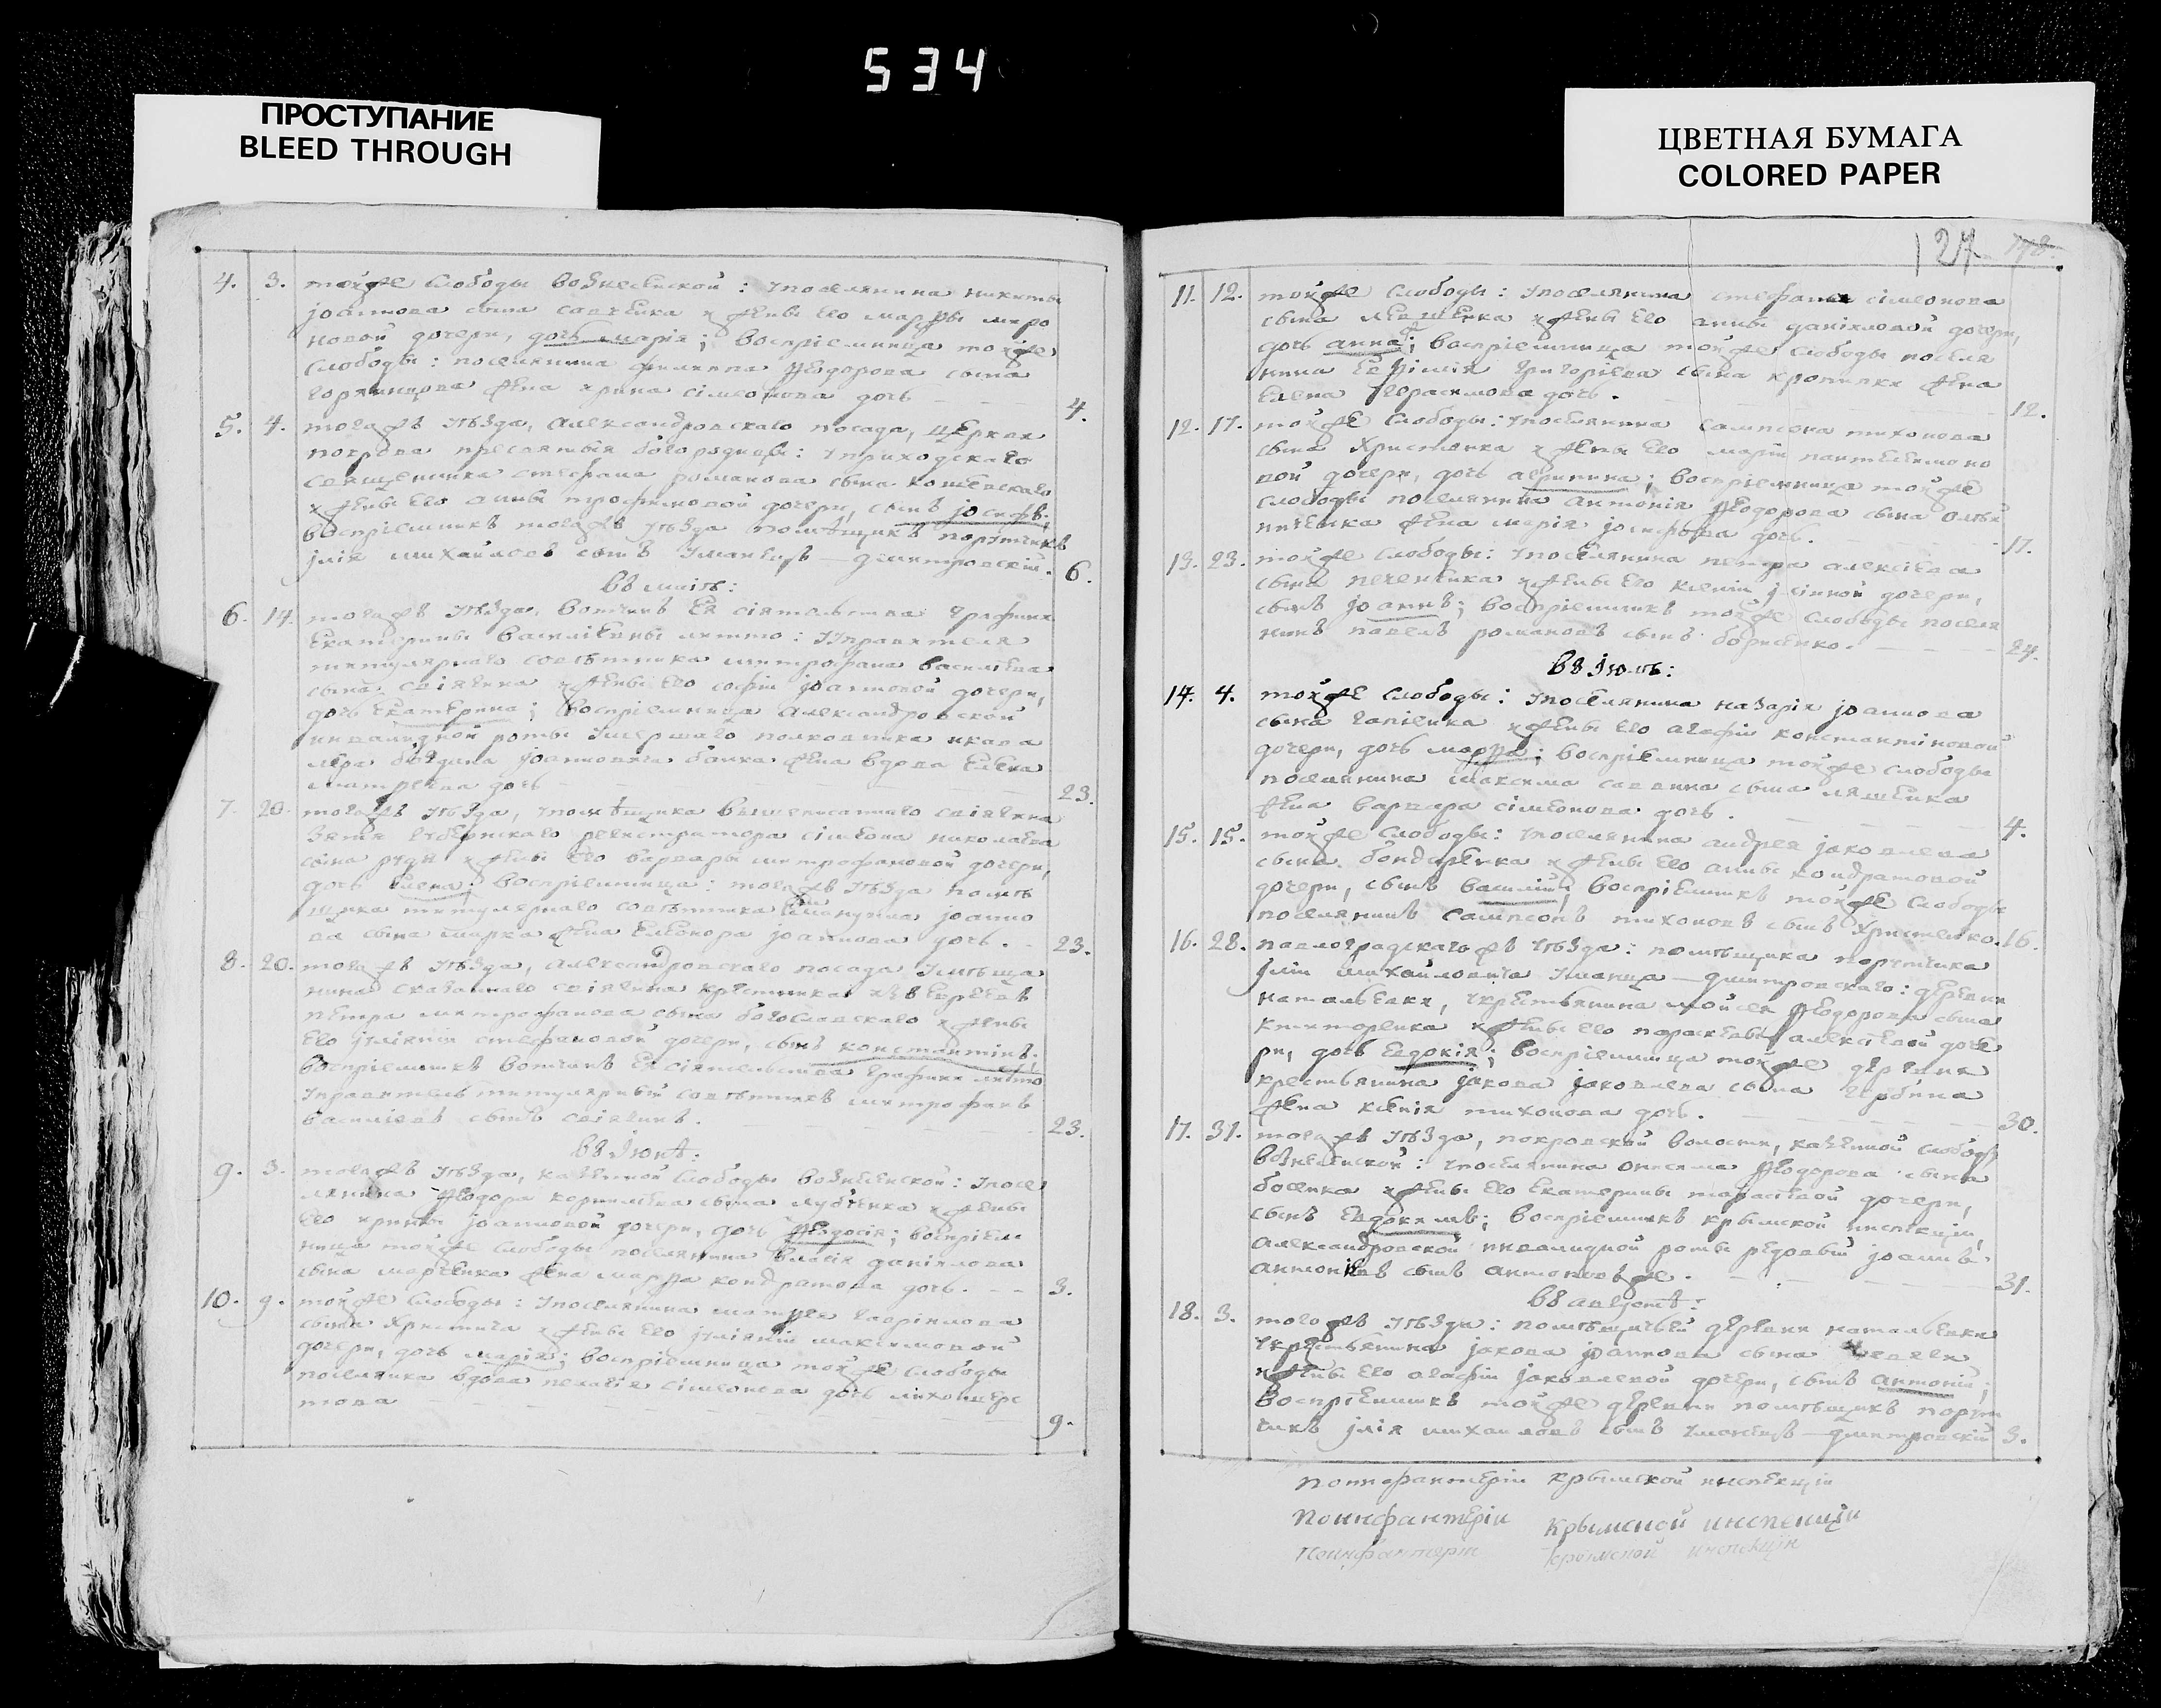 534
ПРОСТУПАНИЕ
BLEED THROUGH
ЦВЕТНАЯ БУМАГА
COLORED PAPER
127
4. 3. тойже слободы вознесенской: упоселянина никиты
јоаннова сына савченка и жены его марѳы миро
новой дочери, дочь марія; воспріемница тойже
слободы: поселянина филиппа ѳеодорова сына
жена ирина сімеонова дочь 4.
5. 4. тогожъ уѣзда, александровскаго посада, церкви
покрова пресвятыя богородицы: уприходскаго
священника стефана романова сына
и жены его анны трофимовой дочери, сынъ јосифъ;
воспріемникъ тогожъ уѣзда помѣщикъ порутчикъ
јлія михайловъ сынъ уманецъ-дмитровскій. 6.
въ маіѣ:
6. 14. тогожъ уѣзда, вотчинѣ ея сіятельства графини
екатерины василіевны литто: управителя
титулярнаго совѣтника митрофана васильева
сына свіягина и жены его софіи јоанновой дочери,
дочь екатерина; воспріемница александровской
инвалидной роты умершаго полковника и кава
лера јоанновича жена вдова елена
дочь 23.
7. 20. тогожъ уѣзда, упомѣщика вышеписаннаго свіягина
зятя губернскаго регистратора сімеона николаева
сына и жены его варвары митрофановой дочери,
дочь елена; воспріемница: тогожъ уѣзда помѣ
щика титулярнаго совѣтника јоанно
ва сына марка жена елеонора јоаннова дочь. 23.
8. 20. тогожъ уѣзда, александровскаго посада умѣща
нина сказаннаго свіягина крестника изъ евреевъ
петра митрофанова сына богославскаго и жены
его јуліаніи стефановой дочери, сынъ константинъ;
воспріемникъ вотчинѣ ея сіятельства графини литто
управитель титулярный совѣтникъ митрофанъ
василіевъ сынъ свіягинъ. 23.
въ јюнѣ:
9. 3. тогожъ уѣзда, казенной слободы вознесенской: упосе
лянина ѳеодора корниліева сына и жены
его ирины јоанновой дочери, дочь ѳеодосія; воспріем
ница тойже слободы поселянина власія даніилова
сына марченка жена марѳа кондратова дочь. 3.
10. 9. тойже слободы: упоселянина матѳея гавріилова
сына христича и жены его јуліаніи максимовой
дочери, дочь марія; воспріемница тойже слободы
поселянка вдова пелагія сімеонова дочь лихошерс
това 9.
11. 12. тойже слободы: упоселянина стефана сімеонова
сына левшенка и жены его анны даніиловой дочери,
дочь анна; воспріемница тойже слободы поселя
нина евѳимія григоріева сына кропивки жена
елена герасимова дочь. 12.
12. 17. тойже слободы: упоселянина сампсона тихонова
сына христенка и жены его маріи пантелеимоно
вой дочери, дочь акрипина; воспріемница тойже
слободы поселянина антонія ѳеодорова сына
жена марія јосифова дочь. 17.
13. 23. тойже слободы: упоселянина петра алексіева
сына печененка и жены его ксеніи дочери,
сынъ јоаннъ; воспріемникъ тойже слободы поселя
нинъ павелъ романовъ сынъ борисенко. 24.
въ јюлѣ:
14. 4. тойже слободы: упоселянина назарія јоаннова
сына гапіенка и жены его агафіи константиновой
дочери, дочь марѳа; воспріемница тойже слободы
поселянина максима саввина сына ляшенка
жена варвара сімеонова дочь. 4.
15. 15. тойже слободы: упоселянина андрея јаковлева
сына бондаренка и жены его анны кондратовой
дочери, сынъ василій; воспріемникъ тойже слободы
поселянинъ сампсонъ тихоновъ сынъ христенко. 16.
16. 28. павлоградскагожъ уѣзда: помѣщика порутчика
јліи михайловича уманца-дмитровскаго: деревни
натальевки, укрестьянина мойсея ѳеодорова сына
и жены его параскевы алексіевой доче
ри, дочь евдокія; воспріемница тойже деревни
крестьянина јакова јаковлева сына
жена ксенія тихонова дочь. 30.
17. 31. тогожъ уѣзда, покровской волости, казенной слободы
вознесенской: упоселянина онисима ѳеодорова сына
босенка и жены его екатерины тарасіевой дочери,
сынъ евдокимъ; воспріемникъ крымской инспекціи,
александровской инвалидной роты рядовый јоаннъ
антоніевъ сынъ 31.
въ августѣ:
18. 3. тогожъ уѣзда: помѣщичьей деревни натальевки
укрестьянина јакова јоаннова сына
и жены его агафіи јаковлевой дочери, сынъ антоній;
воспріемникъ тойже деревни помѣщикъ порут
чикъ јлія михайловъ сынъ уманецъ-дмитровскій 3.
поинфантеріи крымской инспекціи
Поинфантеріи Крымской инспекціи
Поинфантеріи Крымской инспекціи